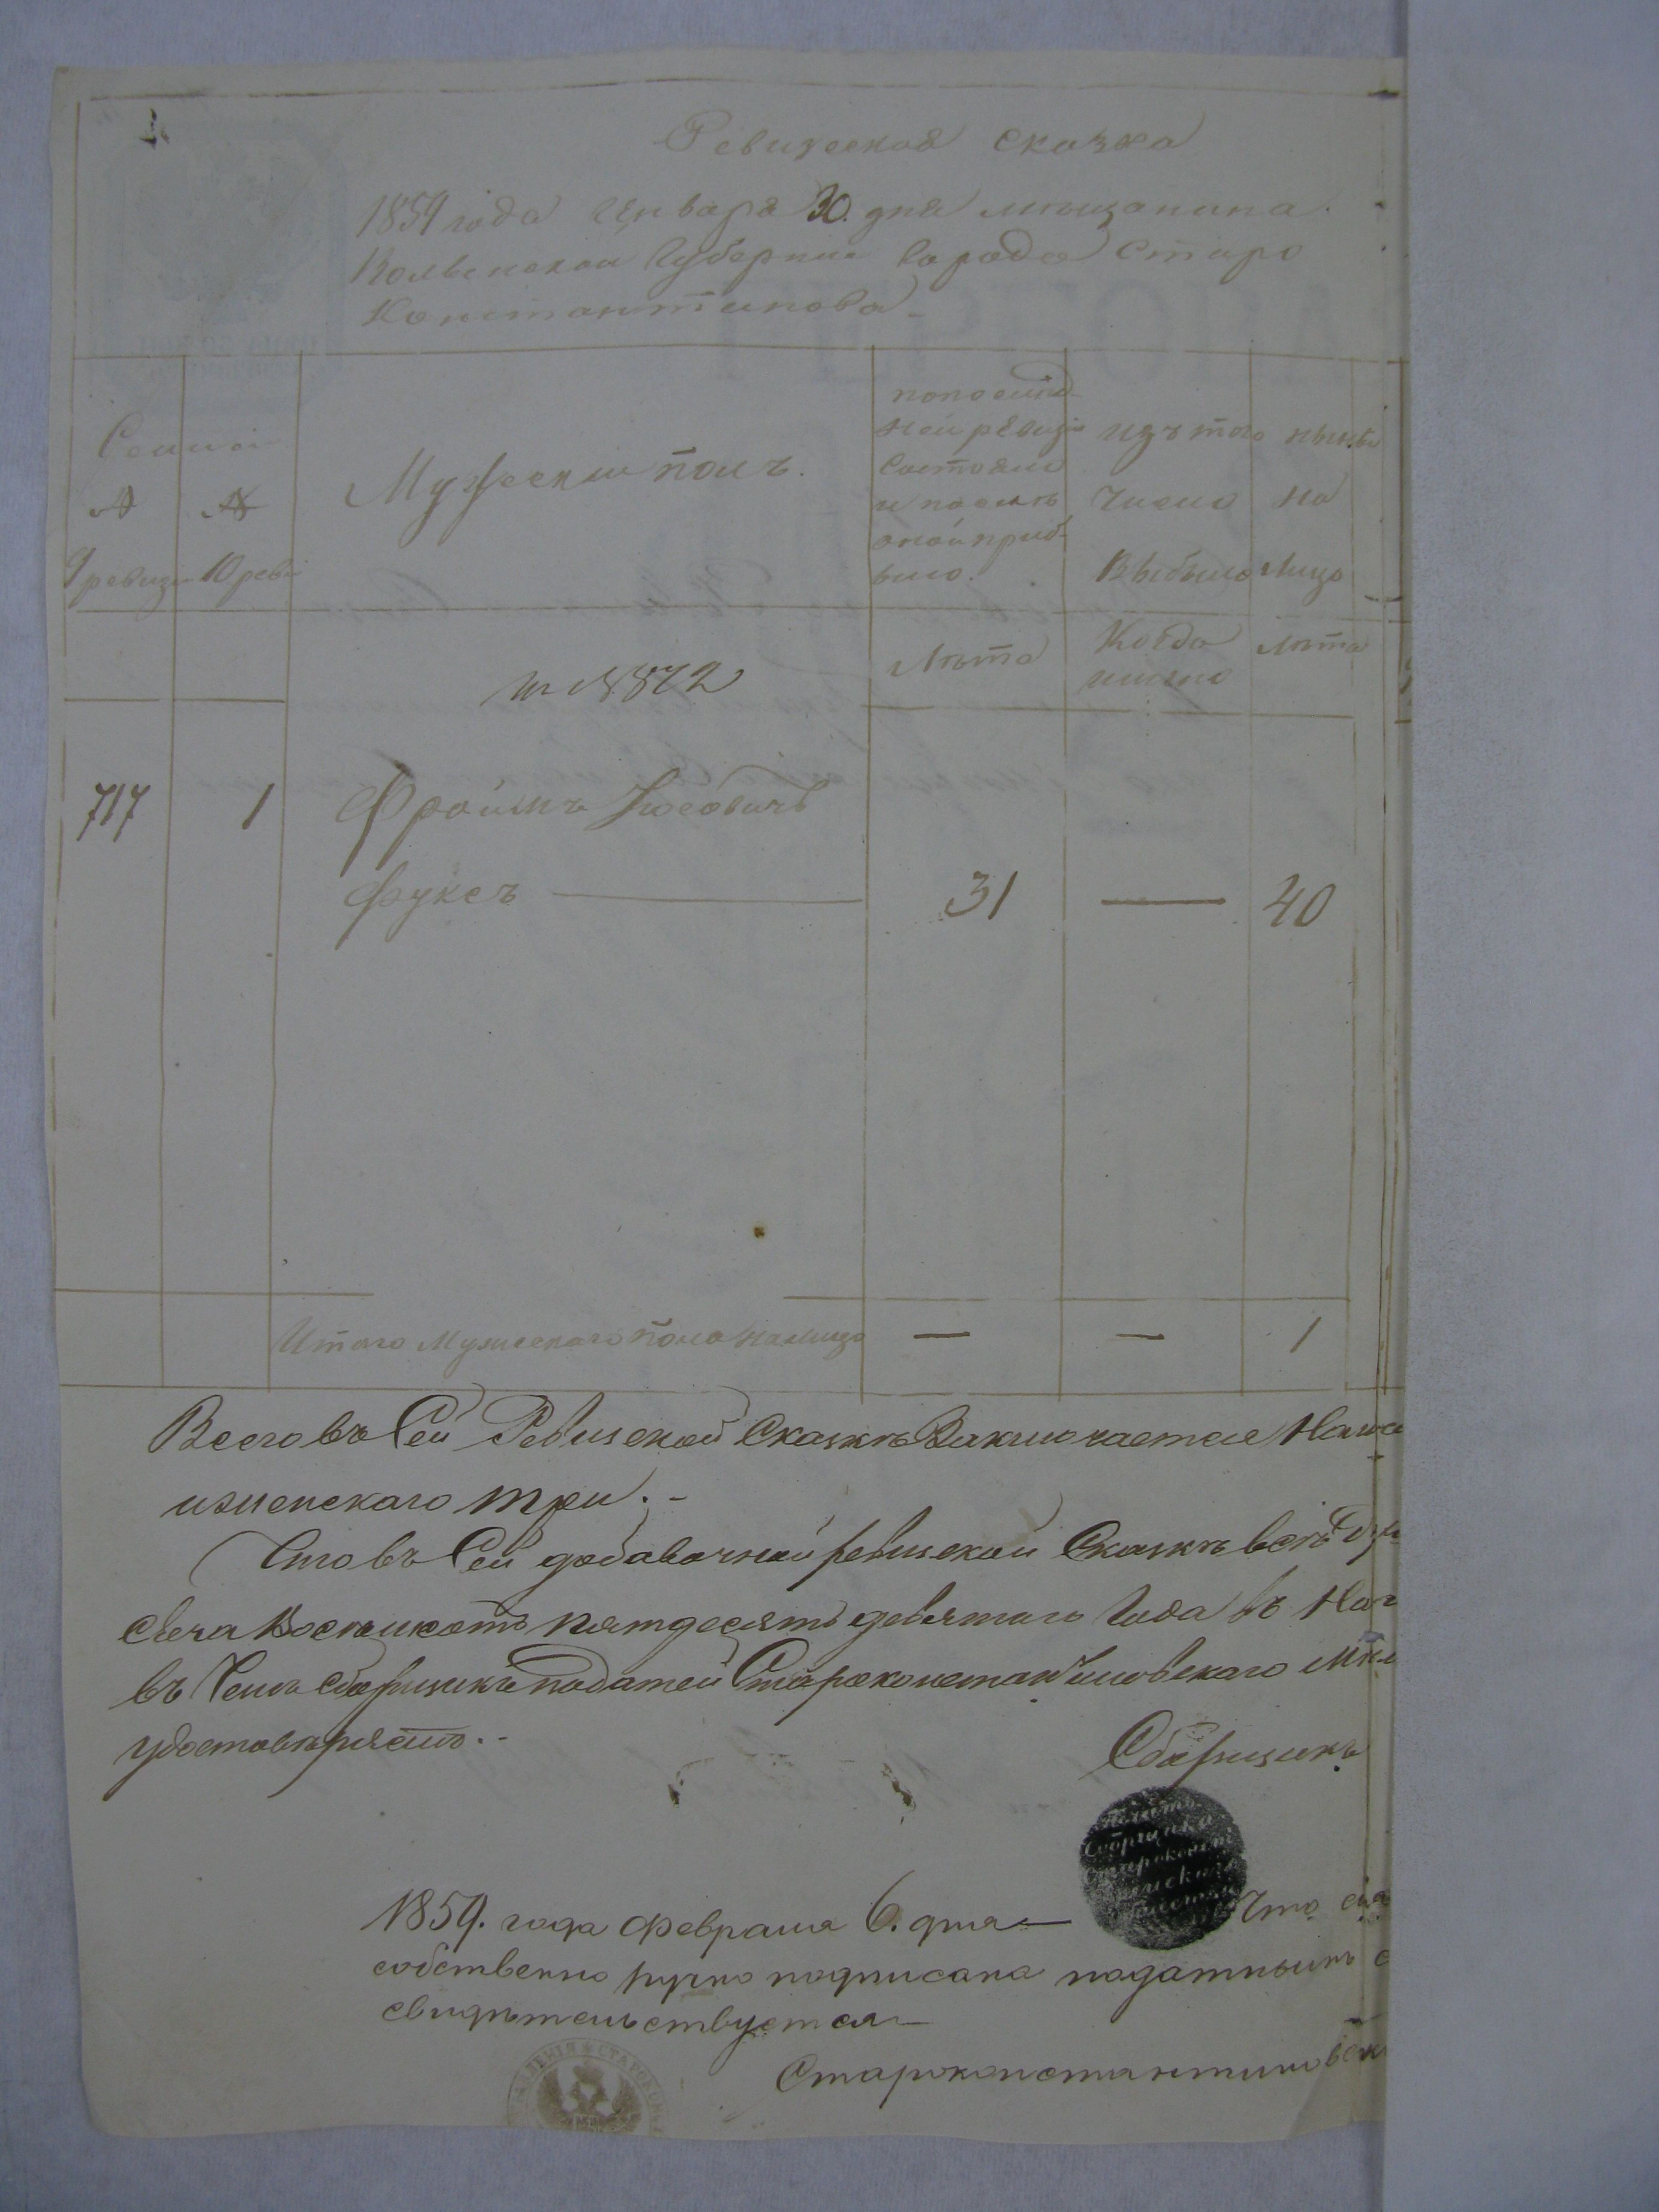 Ревизская сказка
1859 года Генваря 30. дня мѣщанина
Волынской Губернии города Старо
Константинова
Семей
№ №
9 ревизіи 10 реви
Мужескій полъ.
по послѣд
ней ревизіи
состояло
и послѣ
оной приб
ыло.
изъ того
числа
выбыло
нынѣ
на
лицо
Лѣта
Когда
именно
лѣта
717 1 Фроимъ Іосовичъ
Фуксъ 31 — 40
Итого Мужескаго пола налицо — — 1
Всего въ Сей Ревизской Сказкѣ Заключается
и женскаго три. -
Что въ Сей добавочной ревизской Сказкѣ всѣ
пятдесятъ девятаго Года въ
въ Чемъ сборщикъ податей Староконстантиновскаго
удостовѣряетъ. -
Сборщикъ
Печать
Сборщика
Староконст
1859. года Февраля 6. дня — Что сія
собственно ручно подписана податнымъ с
свидѣтельствуется —
Староконстантиновск
СТАРОКОН